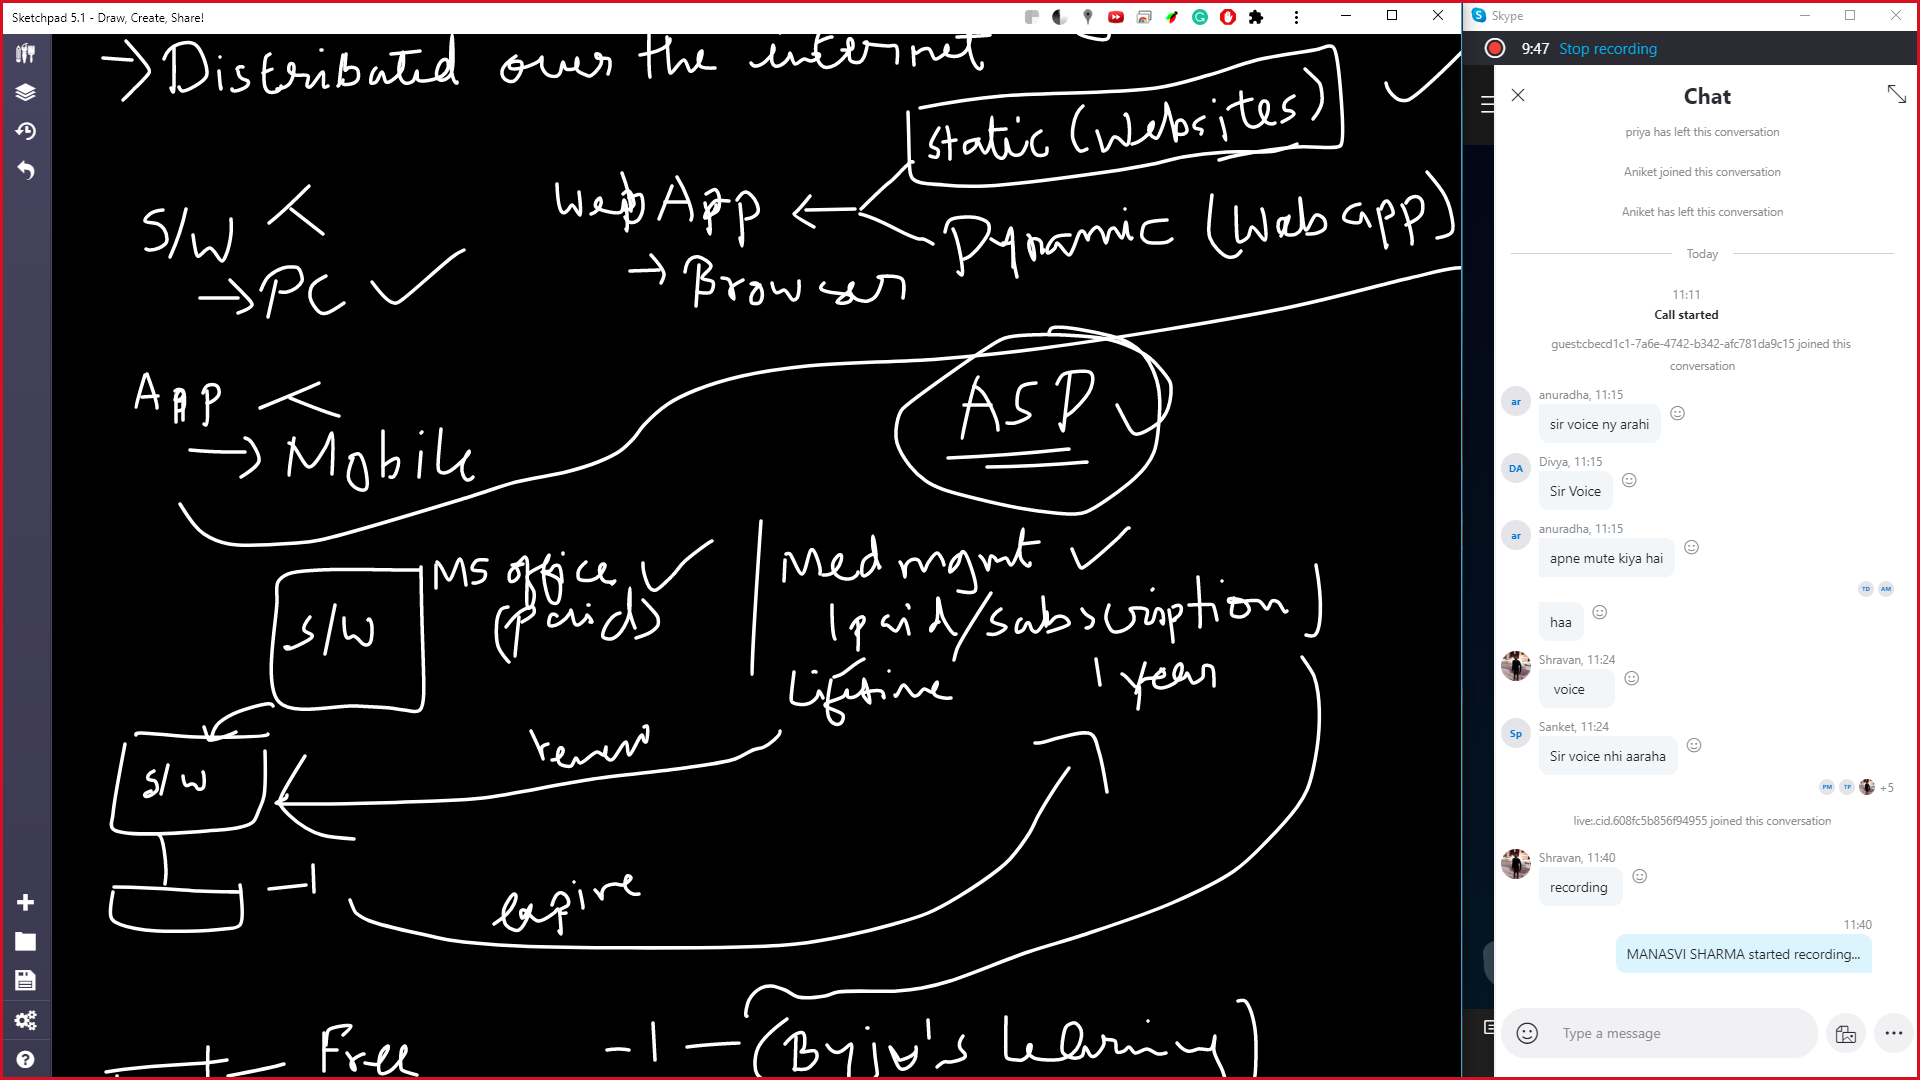 Sketchpad 5.1 - Draw, Create, Share!
→ Distributed over the internet
static (Websites)
S/W
Web App
Dynamic (Web app)
→ PC
→ Browser
App
ASP
→ Mobile
S/W
MS office
(paid)
Med mgmt
(paid/subscription)
Lifetime
1 year
S/W
renew
-1
expire
Free
-1 — (Byju's Learning)
Skype
9:47 Stop recording
Chat
priya has left this conversation
Aniket joined this conversation
Aniket has left this conversation
Today
11:11
Call started
guest:cbecd1c1-7a6e-4742-b342-afc781da9c15 joined this
conversation
ar
anuradha, 11:15
sir voice ny arahi
DA
Divya, 11:15
Sir Voice
ar
anuradha, 11:15
apne mute kiya hai
TD AM
haa
Shravan, 11:24
voice
Sp
Sanket, 11:24
Sir voice nhi aaraha
PM TP +5
live:.cid.608fc5b856f94955 joined this conversation
Shravan, 11:40
recording
11:40
MANASVI SHARMA started recording...
Type a message